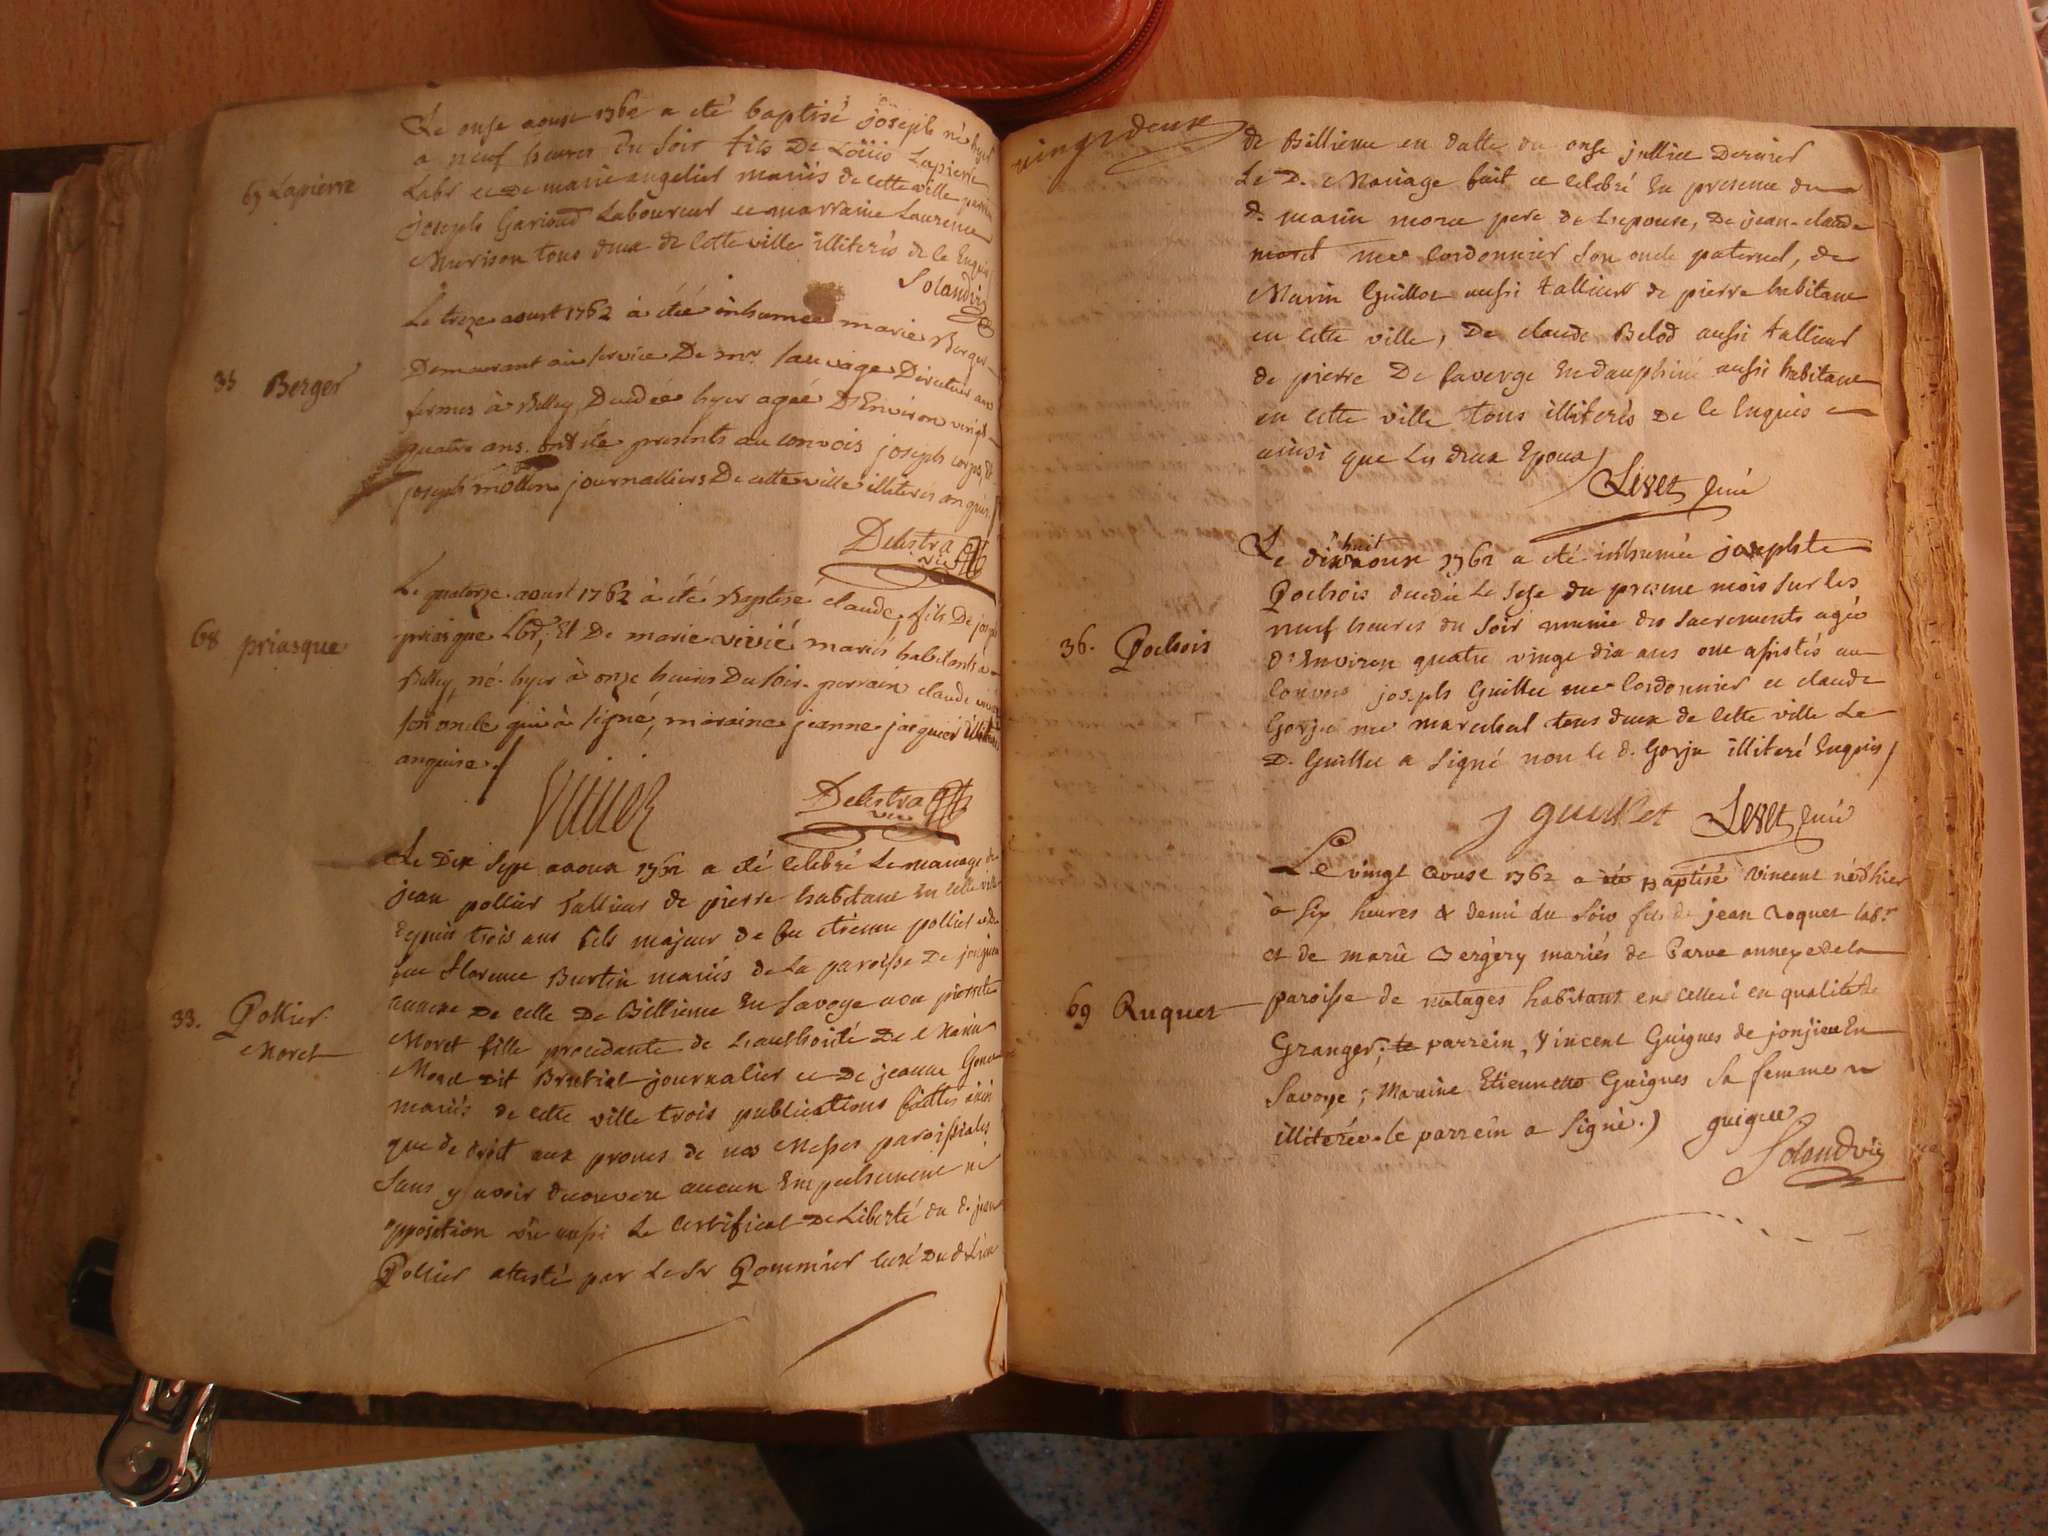 Le onse aoust 1762 a été baptisé joseph né hyer
a neuf heures du soir fils De Loüis Lapierre
67 Lapierre
Labr et De marie angelier mariés de cette ville parrin
joseph Garioud Laboureur et marraine Laurence
Murison tous deux de cette ville illiterés de ce Enquis
Solandvic
Le treze aoust 1762 à été inhumée marie Berger
Demeurant au service De mr. sauvage Directeur aux
35 Berger
fermes à Belley, Decedée hyer ageé D'Environ vingt
quatre ans. ont été presents au convois joseph
joseph mollin journalliers De cette ville illiterés enquis
Delestra
vic
Le quatorze aoust 1762 à été Baptisé claude, fils De joseph
68 priasque
priasque Lbr, Et De marie vivié mariés habitants a
Belley, né hyer à onze heures Du soir. parrain claude
son oncle qui à signé, maraine jeanne jarguier illiterée
anquise./
Vivier
Delestra
vic
Le Dix Sept aaoux 1762 a été celebré Le mariage de
jean pollier tallieur de pierre habitant En cette ville
depuis trois ans fils majeur de feu étienne pollier et de
feue florence Burtin mariés de La paroisse De jonjieu
33. Pollier
Moret
annexe De celle De Billieme En Savoye avec pierrette
Moret fille procedante de L'authorité De Marin
Moret dit journalier et De jeanne
mariés de cette ville trois publications faittes ainsi
que de droit aux prones de nos Messes paroissiales
sans y avoir decouvert aucun Empechement ni
opposition vû aussi Le certificat De Liberté du d. jean
Pollier attesté par Le Sr Pommier curé Dud Lieu
vingt deux
de Billieme en datte du onse jullie Dernier
Le D. Mariage fait et celebré En presence du
d. marin moret pere de L'epouse, De jean-claude
moret me cordonnier son oncle paternel, de
Marin Guillot aussi tallieur de pierre habitant
en cette ville, De claude Belod aussi tallieur
de pierre De faverge En dauphiné aussi habitant
en cette ville tous illiterés De ce Enquis
ainsi que les deux Epoux/
Levet Curé
Le dix huit aoux 1762 a été inhumée josephte
Pochois decedée Le seze du present mois sur les
neuf heures du soir munie des sacrements ageé
36. Pochois
D'Environ quatre vingt dix ans ont assistés au
convois joseph Guillet me cordonnier et claude
Gorju me marechal tous deux de cette ville Le
D. Guillet a signé non le d. Gorju illiteré Enquis/
j guillet Levet Curé
Le vingt aoust 1762 a été Baptisé vincent né d'hier
à six heures & demi du soir fils de jean Roquet labr.
et de marie Bergery mariés de Parve annexe de la
69 Ruquet
paroisse de natages habitant en celleci en qualité de
Granger; le parrein, Vincent Guigues de jonjieu En
savoye; Maraine Etiennette Guigues sa femme
illiterée. le parrein a signé.) guigue
Solandvic